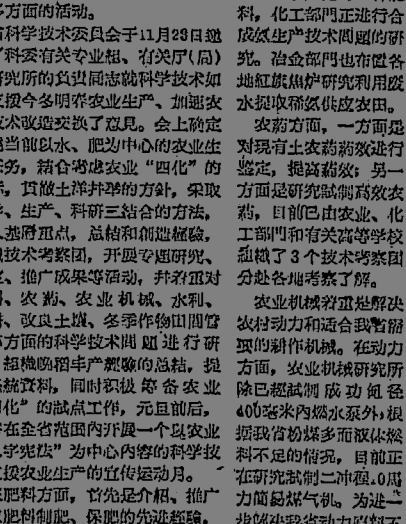 方面的活动。
省科学技术委员会于11月23日邀
了科委有关专业组、有关厅(局)
研究所的负责同志就科学技术如
支援今冬明春农业生产、加速农
技术改造交换了意见。会上确定
当前以水、肥为中心的农业生
任务，结合考虑农业“四化”的
，贯彻土洋并举的方针，采取
、生产、科研三结合的方法，
基层重点，总结和创造经验，
技术考察团，开展专题研究、
、推广成果等活动，并着重对
、农药、农业机械、水利、
、改良土壤、冬季作物田间管
方面的科学技术问题进行研
组织晚稻丰产经验的总结，提
统资料，同时积极筹备农业
化”的试点工作，元旦前后，
在全省范围内开展一个以农业
字宪法”为中心内容的科学技
支援农业生产的宣传运动月。
肥料方面，首先是介绍、推广
肥料制肥、保肥的先进经验，
料，化工部门正进行合
成氨生产技术问题的研
究。冶金部门也布置各
地红旗焦炉研究利用废
水提取稀氨供应农田。
农药方面，一方面是
对现有土农药药效进行
鉴定，提高药效；另一
方面是研究试制高效农
药，目前已由农业、化
工部门和有关高等学校
组织了3个技术考察团
分赴各地考察了解。
农业机械着重是解决
农村动力和适合我省需
要的耕作机械。在动力
方面，农业机械研究所
除已经试制成功短径
400毫米内燃水泵外，根
据我省粉煤多而液体燃
料不足的情况，目前正
在研究试制二冲程.0马
力简易煤气机。为进一
步解决我省动力燃料不